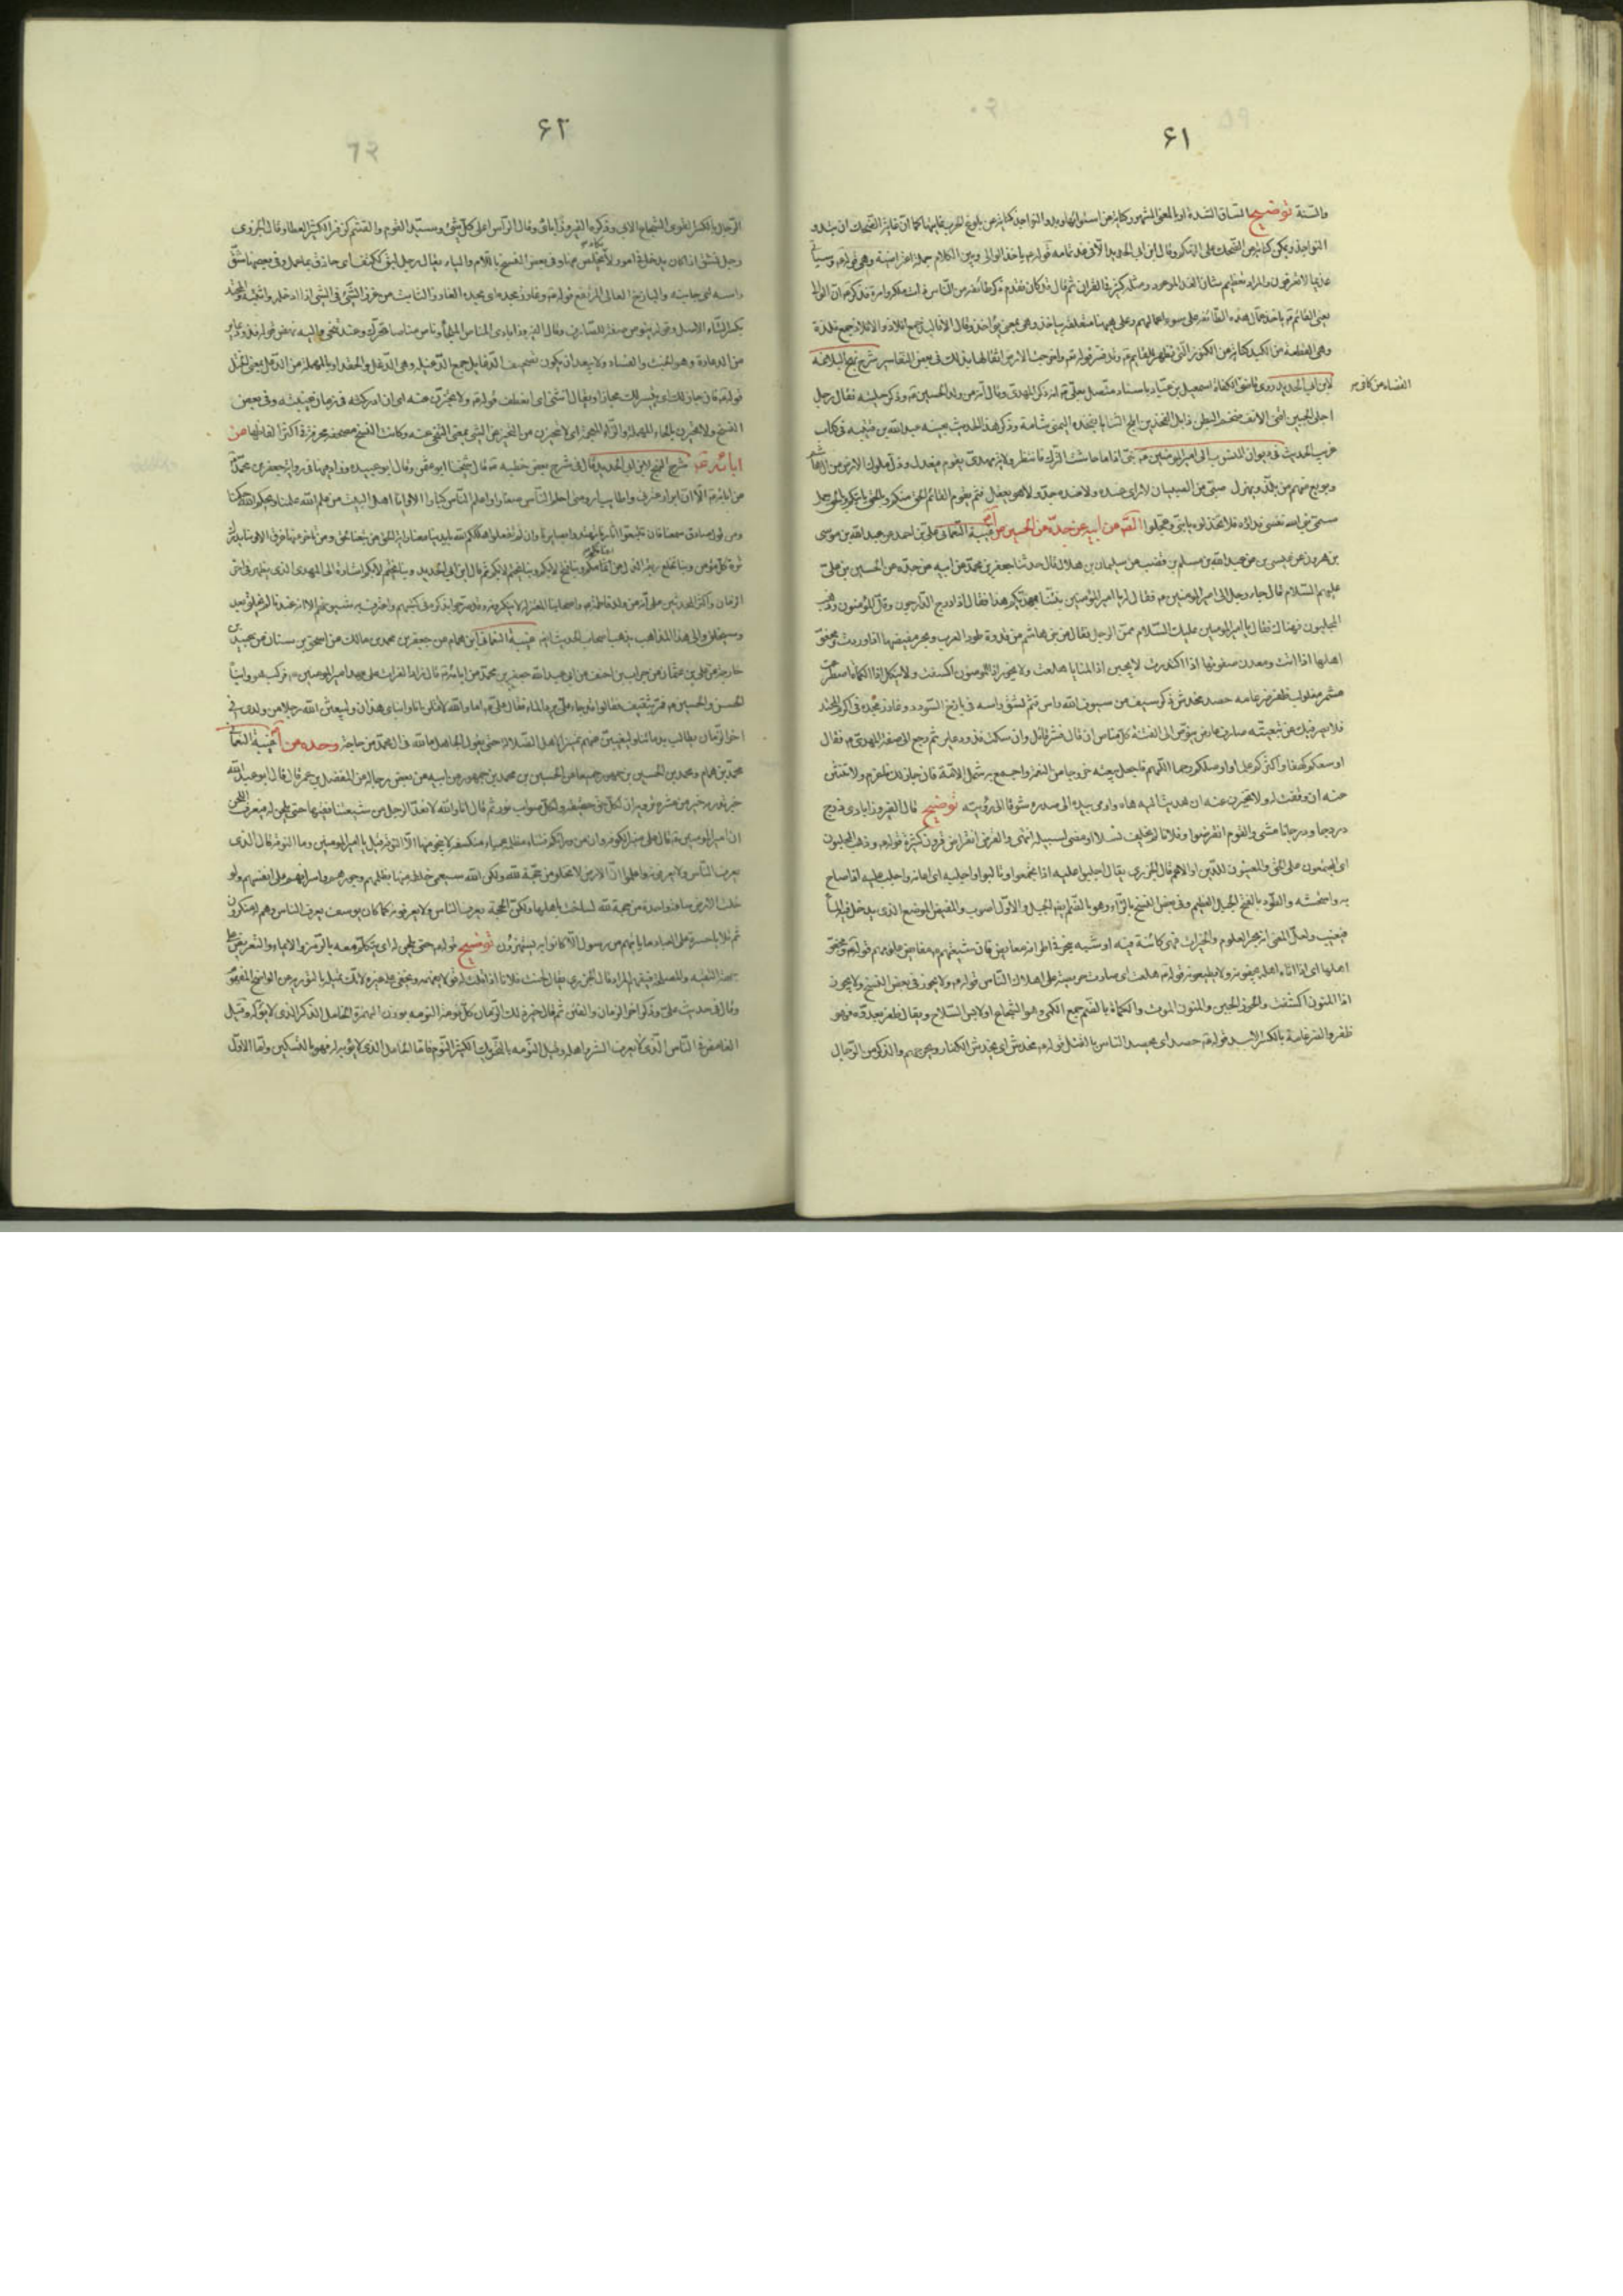 ۶۱
والسنة توضيح الساق الشدة او بالمعنى المشهور كناية عن استوائها وبدو النواجذ كناية عن بلوغ الحرب غايتها كما ان غاية الضحك ان تبدو
النواجذ ويمكن كناية عن الضحك على التهكم وقال ابن ابى الحديد الا وفى غد تمامه قوله ياخذ الوالى وبين الكلام جملة اعتراضية وهى قوله وسيأتى
غد بما لا تعرفون والمراد تعظيم شأن الغد الموعود ومثله كثير فى القران ثم قال قد كان تقدم ذكر طائفة من الناس ذات ملك وامرة فذكر ان الوالى
يعنى القائم ياخذ عمال هذه الطائفة على سوء اعمالهم وعلى ههنا متعلقة بياخذ وهى بمعنى يؤاخذ وقال الافاليذ جمع افلاذ والافلاذ جمع فلذة
وهى القطعة من الكبد كناية عن الكنوز التى تظهر للقائم وقد فسر قوله تع واخرجت الارض اثقالها بذلك فى بعض التفاسير شرح نهج البلاغة
لابن ابى الحديد روى قاضى القضاة عن كافى الكفاة اسمعيل بن عباد باسناد متصل بعلى انه ذكر المهدى وقال انه من ولد الحسين وذكر حليته فقال رجل
اجلى الجبين اقنى الانف ضخم البطن ازيل الفخذين ابلج الثنايا بفخذه اليمنى شامة وذكر هذا الحديث بعينه عبد الله بن قتيبة فى كتاب
غريب الحديث فى ديوان المنسوب الى امير المؤمنين بنى اذا ما جاشت الترك فانتظر ولاية مهدى يقوم فيعدل وذل ملوك الارض من ال هاشم
وبويع منهم من يلذ ويهزل صبى من الصبيان لا راى عنده ولا عنده جد ولا هو يعقل فثم يقوم القائم الحق منكم وبالحق ياتيكم وبالحق يعمل
سمى نبى الله نفسى فداؤه فلا تخذلوه يا بنى وعجلوا ابائه غيبة النعمانى على بن احمد عن عبيد الله بن موسى
بن هرون عن عيسى بن عبد الله بن مسلم بن قعنب عن سليمان بن هلال قال حدثنا جعفر بن محمد عن ابيه عن جده عن الحسين بن على
عليهم السلام قال جاء رجل الى امير المؤمنين فقال له يا امير المؤمنين نبئنا بمهديكم هذا فقال اذا درج الدارجون وقل المؤمنون وذهب
المجلبون فهناك فقال يا امير المؤمنين عليك السلام ممن الرجل فقال من بنى هاشم من ذروة طود العرب وبحر مغيضها اذا وردت ومجفو
اهلها اذا اتت ومعدن صفوتها اذا اكتدرت لا يجبن اذا المنايا هلعت ولا يحور اذا المؤمنون اكتنفت ولا ينكل اذا الكماة اصطرعت
مشمر مغلولب ظفر ضرغامة حصد مخدش ذكر سيف من سيوف الله راس قثم نشق راسه فى باذخ السودد وغارز مجده فى اكرم المحتد
فلا يصرفنك عن تبعته صارف عارض ينوص الى الفتنة كل مناص ان قال فشر قائل وان سكت فذو دعاير ثم رجع الى صفة المهدى فقال
اوسعكم كهفا واكثركم علما واوصلكم رحما اللهم فاجعل بيعته خروجا من الغمة واجمع به شمل الامة فان جاز لك فاعزم ولا تنثن
عنه ان وفقت له ولا تجيزن عنه ان هديت اليه هاه واومى بيده الى صدره شوقا الى رؤيته توضيح قال الفيروزابادى درج
دروجا ودرجانا مشى والقوم انقرضوا وفلان لم يخلف نسلا او مضى لسبيله انتهى والغرض انقراض قرون كثيرة قوله وذهب المجلبون
اى المجتمعون على الحق والمعينون للدين او الاعم قال الجزرى يقال اجلبوا عليه اذا تجمعوا وتالبوا واجلبه اى اعانه واجلب عليه اذا صاح
به واستحثه والطود بالفتح الجبل العظيم وفى بعض النسخ بالراء وهو بالضم ايضا الجبل والاول اصوب والمغيض الموضع الذى يدخل فيه الماء
فيغيب ولعل المعنى انه بحر العلوم والخيرات فهى كامنة فيه او شبهه ببحر فى اطرافه مغايض فان شيعتهم مغايض علومهم قوله ومجفو
اهلها اى اذا اتاه اهله يجفونه ولا يطيعونه قوله هلعت اى صارت حريصة على اهلاك الناس قوله ولا يحور فى بعض النسخ ولا يجوز
اذا المنون اكتنفت والخور الجبن والمنون الموت والكماة بالضم جمع الكمى وهو الشجاع او لابس السلاح ويقال ظفر بعدوه فهو
ظفر والضرغامة بالكسر الاسد قوله حصد اى يحصد الناس بالقتل قوله مخدش اى يخدش الكفار ويجرحهم والذكر من الرجال
۶۲
الرجال بالكسر القوى الشجاع الابى وذكره الفيروزابادى وقال الراس اعلى كل شئ وسيد القوم والقثم كزفر الكثير العطاء وقال الجزرى
رجل نشق اذا كان يدخل فى امور لا يكاد يخلص منها وفى بعض النسخ باللام والباء يقال رجل لبق ككتف اى حاذق بما عمل وفى بعضها شق
راسه اى جانبه والباذخ العالى المرتفع قوله وغارز مجده اى مجده الغارز الثابت من غرز الشئ فى الشئ اذا ادخله واثبته والمحتد
بكسر التاء الاصل وقوله ينوص صفة للصارف وقال الفيروزابادى المناص الملجأ وناص مناصا تحرك وعنه تنحى واليه نهض قوله فذو دعاير
من الدعارة وهو الخبث والفساد ولا يبعد ان يكون تصحيف الدغايل جمع الدغيلة وهى الدغل والحقد او بالمهملة من الدعل بمعنى الختل
قوله فان جاز لك اى تيسر لك مجازا ويقال انثنى اى انعطف قوله ولا تجيزن عنه اى ان ادركته فى زمان غيبته وفى بعض
النسخ ولا تحيزن بالحاء المهملة والزاء المعجمة اى لا تتحيزن من التحيز عن الشئ بمعنى التنحى عنه وكانت النسخ مصحفة محرفة فى اكثر الفاظها من
ابائه شرح النهج لابن ابى الحديد قال فى شرح بعض خطبه قال شيخنا ابو عثمن وقال ابو عبيدة وزاد فيها فى رواية جعفر بن محمد
عن ابائه الا ان ابرار عترتى واطايب ارومتى احلم الناس صغارا واعلم الناس كبارا الا وانا اهل البيت من علم الله علمنا وبحكم الله حكمنا
ومن قول صادق سمعنا فان تتبعوا اثارنا تهتدوا ببصائرنا وان لم تفعلوا يهلككم الله بايدينا معنا راية الحق من تبعها لحق ومن تاخر عنها غرق الا وبنا يدرك
ترة كل مؤمن وبنا تخلع ربقة الذل عن اعناقكم وبنا فتح لا بكم وبنا يختم لا بكم ثم قال ابن ابى الحديد وبنا يختم لا بكم اشارة الى المهدى الذى يظهر فى اخر
الزمان واكثر المحدثين على انه من ولد فاطمة واصحابنا المعتزلة لا ينكرونه وقد صرحوا بذكره فى كتبهم واعترف به شيوخهم الا انه عندنا لم يخلق بعد
وسيخلق والى هذا المذهب يذهب اصحاب الحديث ايضا غيبة النعمانى ابن همام عن جعفر بن محمد بن مالك عن اسحق بن سنان عن عبيد بن
خارجة عن على بن عثمان عن حراب بن احنف عن ابى عبد الله جعفر بن محمد عن ابائه قال زاد الفرات على عهد امير المؤمنين فركب هو وابناه
الحسن والحسين فمر بثقيف فقالوا قد جاء على يرد الماء فقال على اما والله لاقتلن انا وابناى هذان وليبعثن الله رجلا من ولدى فى
اخر الزمان يطالب بدمائنا وليغيبن عنهم تمييزا لاهل الضلالة حتى يقول الجاهل ما لله فى ال محمد من حاجة غيبة النعمانى
محمد بن همام ومحمد بن الحسين بن جمهور جميعا عن الحسين بن محمد بن جمهور عن ابيه عن بعض رجاله عن المفضل بن عمر قال قال ابو عبد الله
خبر تدريه خير من عشرة ترويه ان لكل حق حقيقة ولكل صواب نورا ثم قال انا والله لا نعد الرجل من شيعتنا فقيها حتى يلحن له فيعرف اللحن
ان امير المؤمنين قال على منبر الكوفة وان من ورائكم فتنا مظلمة عمياء منكسفة لا ينجو منها الا النومة قيل يا امير المؤمنين وما النومة قال الذى
يعرف الناس ولا يعرفونه واعلموا ان الارض لا تخلو من حجة لله ولكن الله سيعمى خلقه منها بظلمهم وجورهم واسرافهم على انفسهم ولو
خلت الارض ساعة واحدة من حجة لله لساخت باهلها ولكن الحجة يعرف الناس ولا يعرفونه كما كان يوسف يعرف الناس وهم له منكرون
ثم تلا يا حسرة على العباد ما ياتيهم من رسول الا كانوا به يستهزؤن توضيح قوله حتى يلحن له اى يتكلم معه بالرمز والايماء والتعريض على
جهة التقية والمصلحة فيفهم المراد قال الجزرى يقال لحنت فلانا اذا قلت له قولا يفهمه ويخفى على غيره لانك تميله بالتورية عن الواضح المفهوم
وقال فى حديث على وذكر اخر الزمان والفتن ثم قال خير ذلك الزمان كل نومة النومة بوزن الهمزة الخامل الذكر الذى لا يؤبه له وقيل
الغامض فى الناس الذى لا يعرف الشر واهله وقيل النومة بالتحريك الكثير النوم فاما الخامل الذى لا يؤبه له فهو بالتسكين ومن الاول